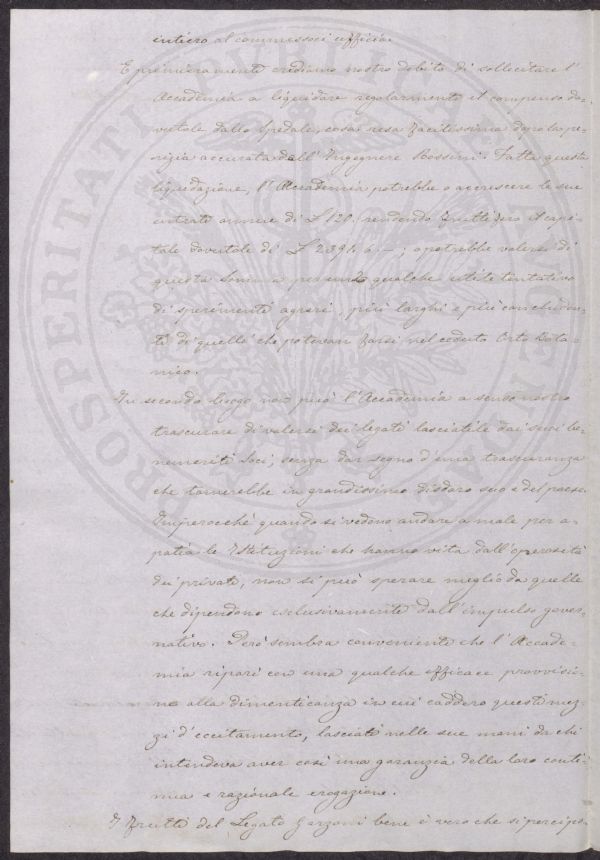 intiero al commessoci ufficio.
E primieramente crediamo nostro debito di sollecitare l'
Accademia a liquidare regolarmente il compenso do-
vutole dallo Spedale, cosa resa facilissima dopo la pe-
rizia accurata dell'Ingegnere Rossini. Fatta questa
liquidazione, l'Accademia potrebbe o accrescere le sue
entrate annue di £ 120. rendendo fruttifero il capi-
tale dovutole di £ 2394. 6. —; o potrebbe valersi di
questa somma per qualche utile tentativo
di sperimenti agrari, più larghi e più concluden-
ti di quelli che potevan farsi nel ceduto Orto Bota-
nico.
In secondo luogo non può l'Accademia a senso nostro
trascurare di valersi dei legati lasciatile dai suoi be-
nemeriti Soci, senza dar segno d'una trascuranza
che tornerebbe in grandissimo disdoro suo e del paese.
Imperocchè quando si vedono andare a male per a-
patia le Istituzioni che hanno vita dall'operosità
dei privati, non si può sperare meglio da quelle
che dipendono esclusivamente dall'impulso gover-
nativo. Però sembra conveniente che l'Accade-
mia ripari con una qualche efficace provvisio-
ne alla dimenticanza in cui caddero questi mez-
zi d'eccitamento, lasciati nelle sue mani da chi
intendeva aver così una garanzia della loro conti-
nua e razionale erogazione.
I frutti del Legato Garzoni bene è vero che si percipo-
PROSPERITATI PUBLICAE AUGENDAE